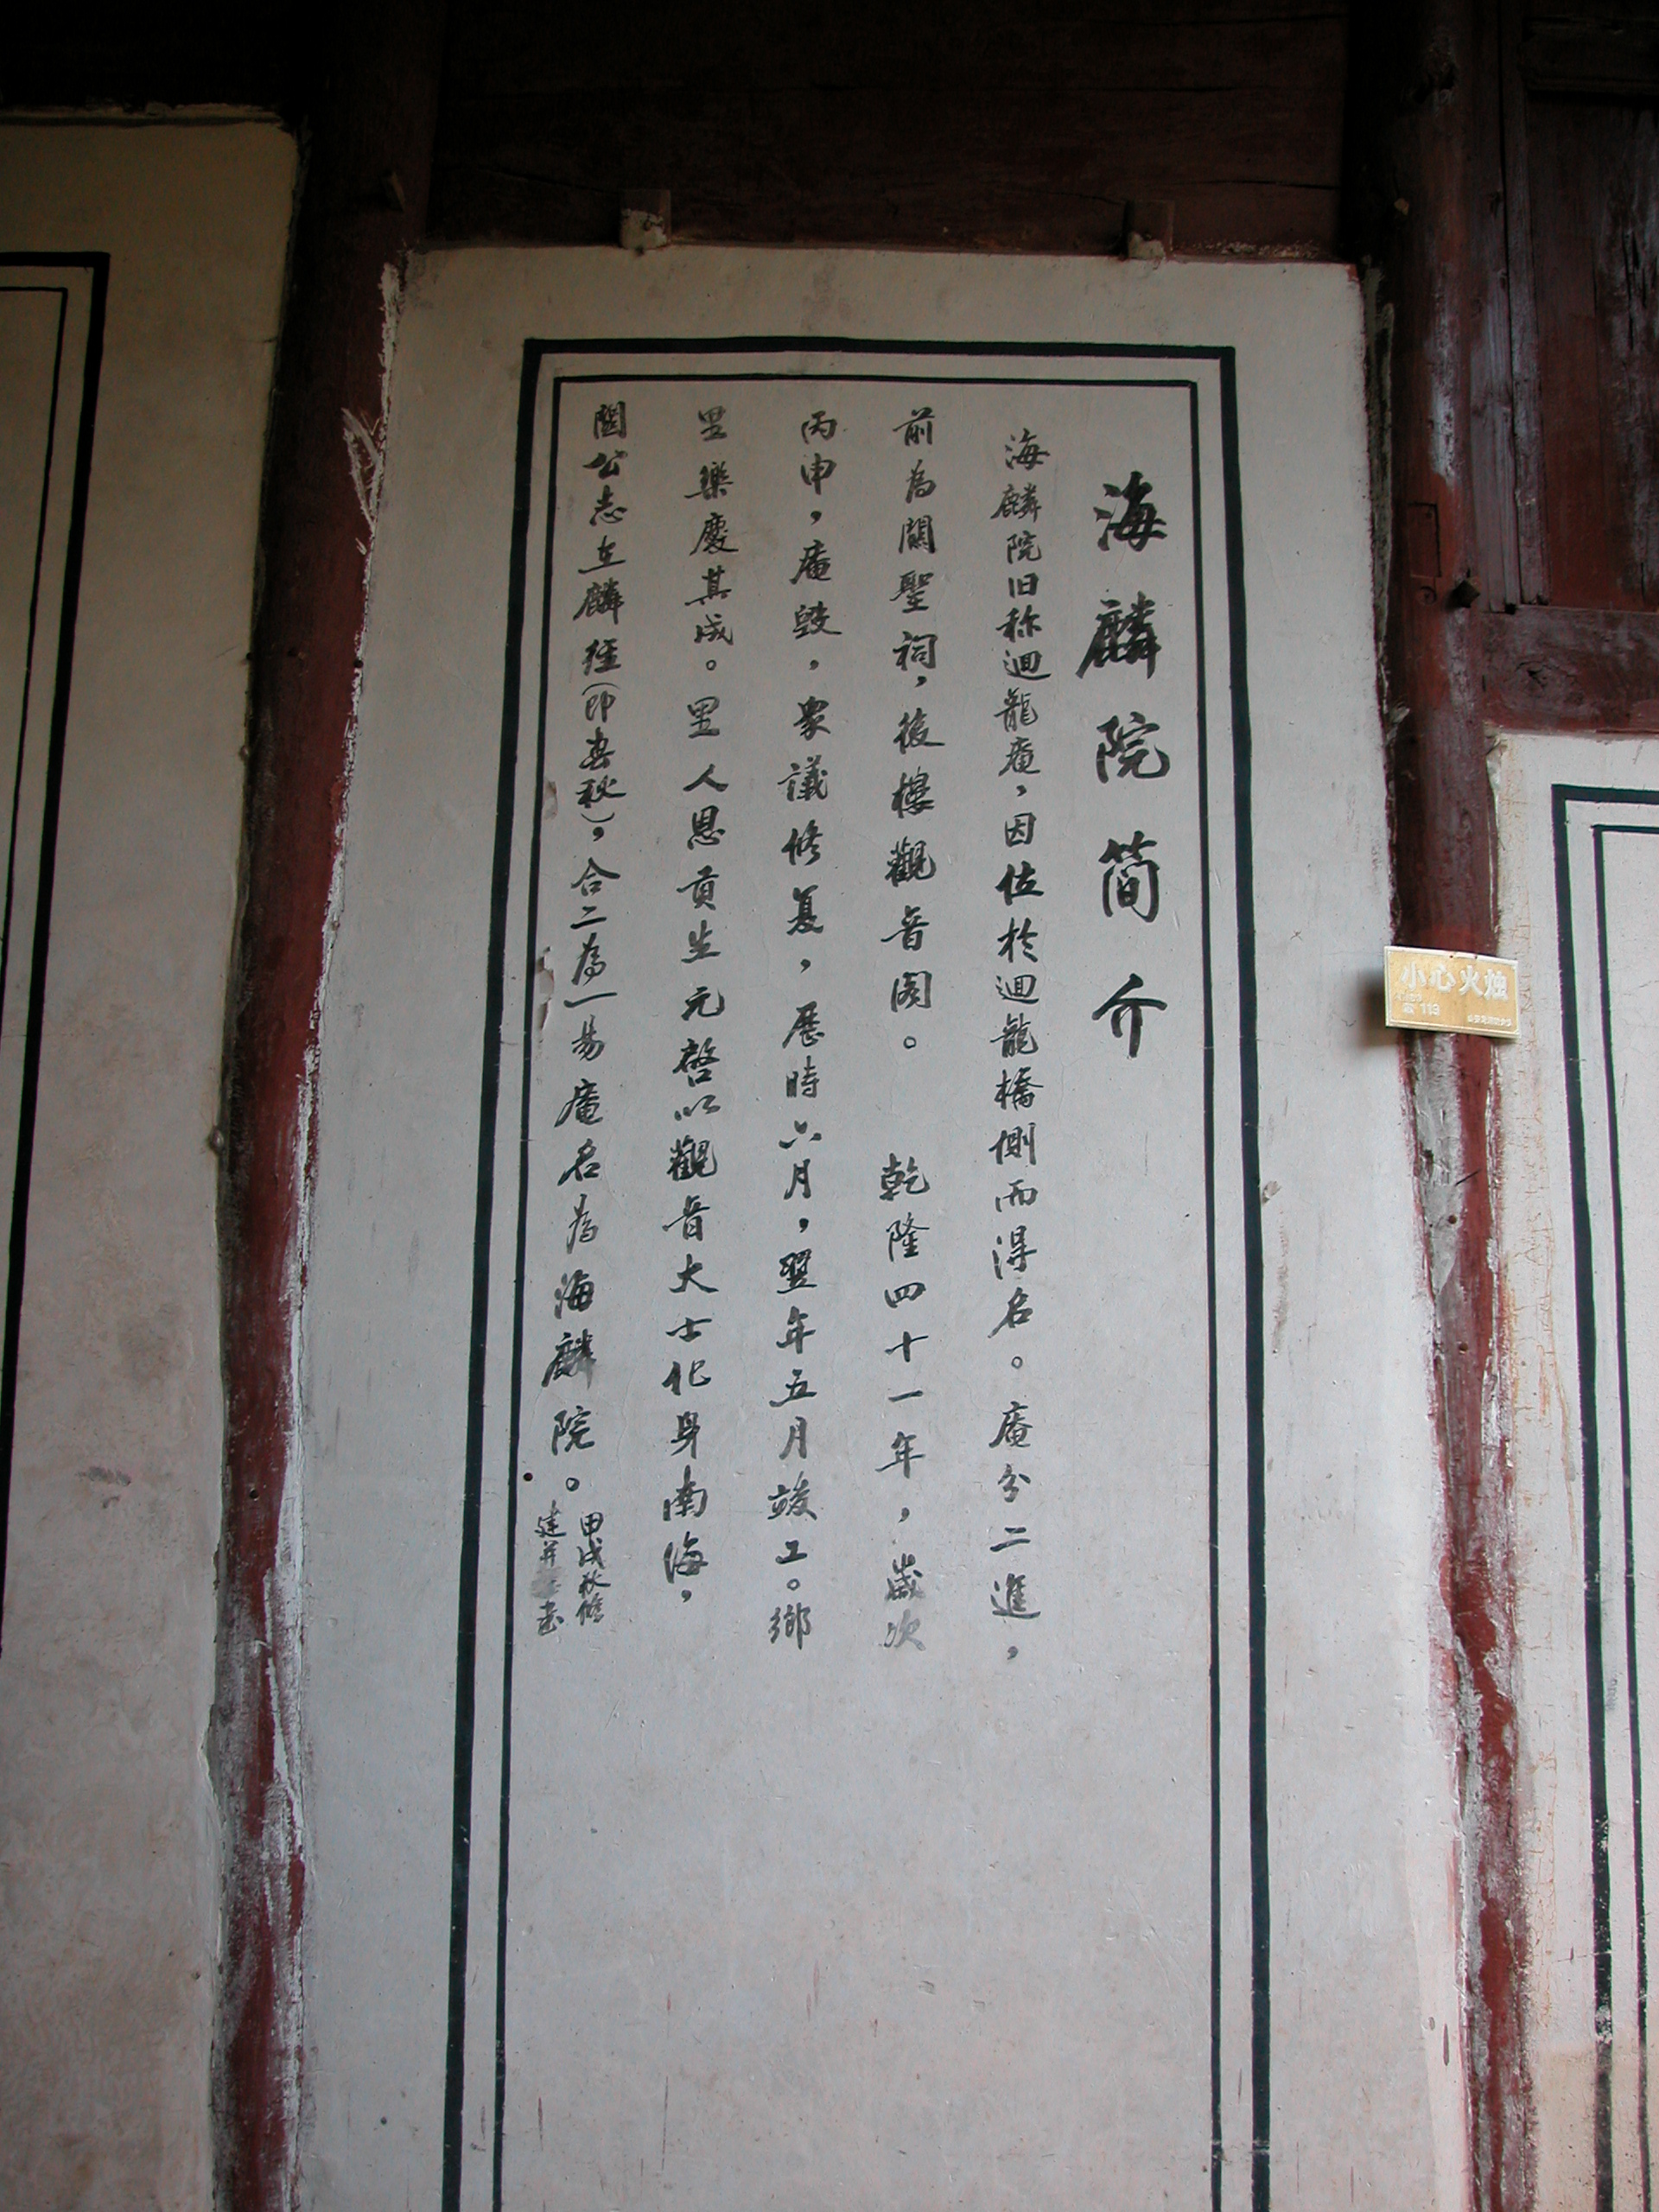 海麟院简介
海麟院旧称迴龍庵，因位於迴龍橋側而得名。庵分二進，
前為關聖祠，後樓觀音阁。 乾隆四十一年，歲次
丙申，庵毀，衆議修复，歷時六月，翌年五月竣工。鄉
里樂慶其成。里人恩貢生元啓以觀音大士化身南海，
關公志在麟經（即春秋），合二為一易庵名為海麟院。
甲戌秋修
建并 書
小心火烛
119